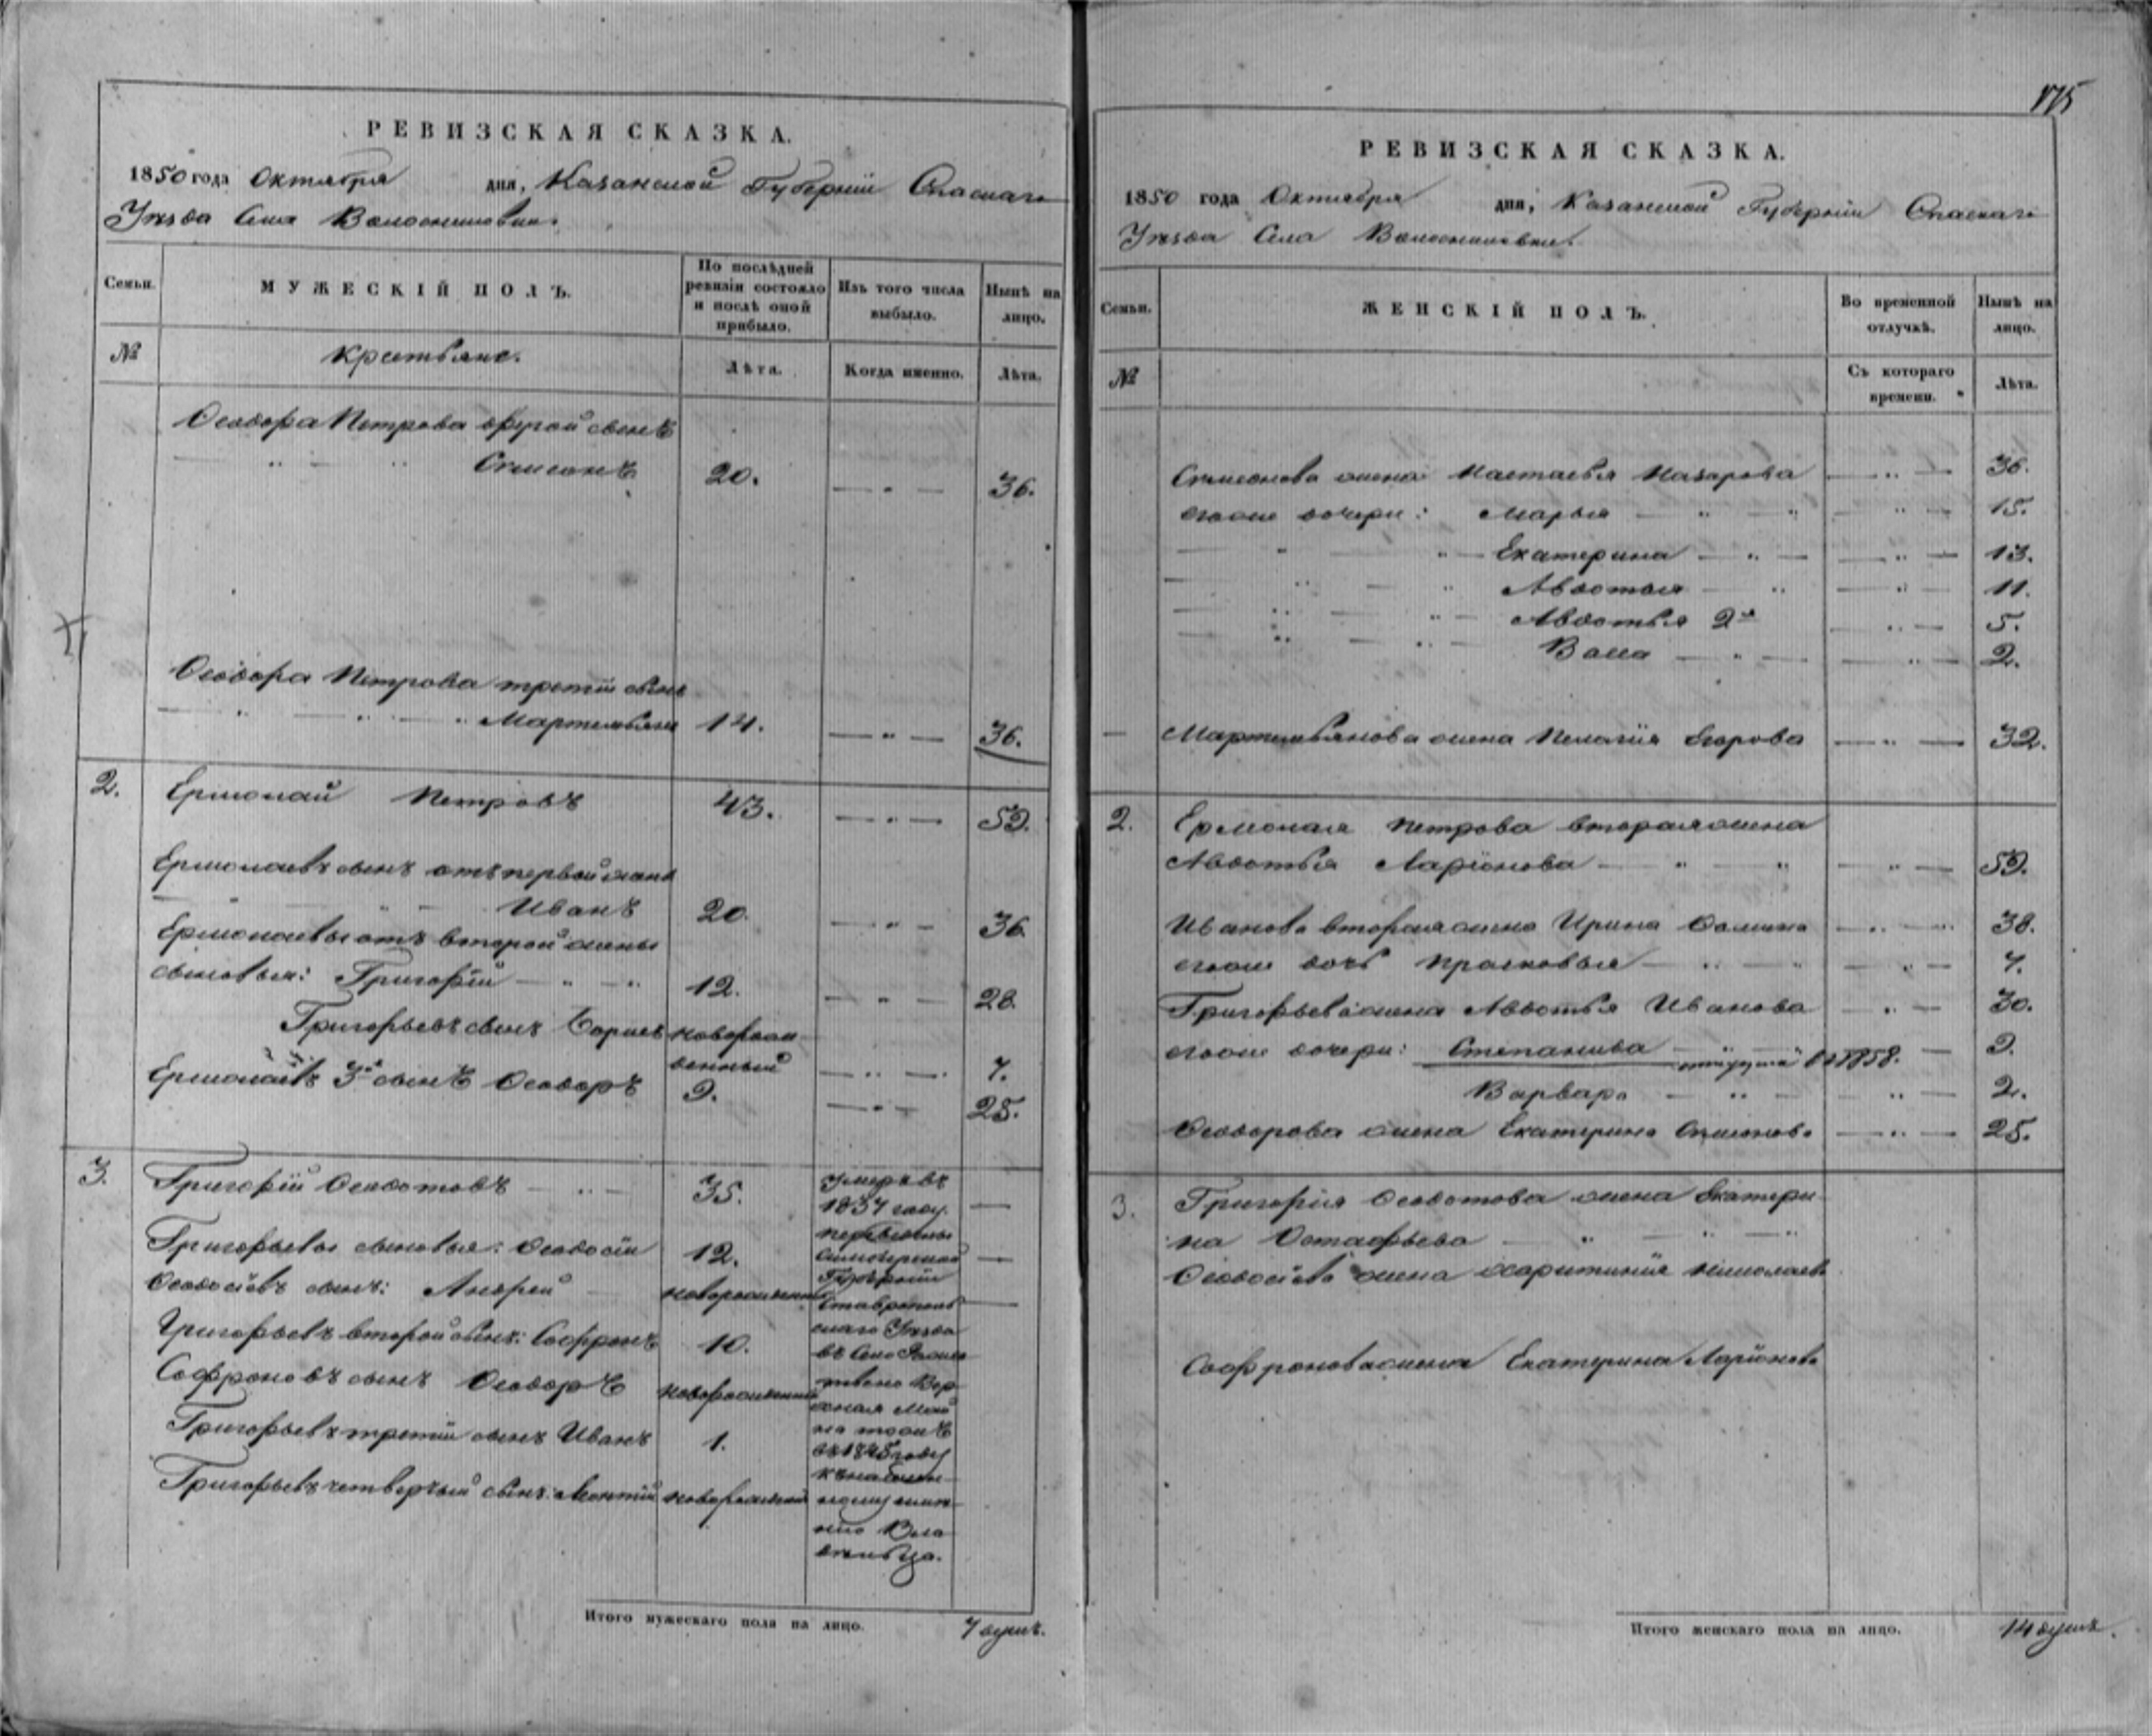 РЕВИЗСКАЯ СКАЗКА.
1850 года Октября дня, Казанской Губерніи Спаскаго
Уезда Села
Семьи.
МУЖЕСКІЙ ПОЛЪ.
По послѣдней ревизіи состояло и послѣ оной прибыло.
Изъ того числа выбыло.
Нынѣ на лицо.
№
Крестьяне.
Лѣта.
Когда именно.
Лѣта.
Ѳеодора Петрова другой сынъ
Симеонъ 20. 36.
Ѳеодора Петрова третій сынъ
Мартемьянъ 14. 36.
2. Ермолай Петровъ 43. 59.
Ермолаевъ сынъ отъ первой жены
Иванъ 20. 36
Ермолаевы отъ второй жены
сыновья: Григорій 12. 28.
Григорьевъ сынъ Борисъ новорож
денный 7.
Ермолаевъ 3й сынъ Ѳеодоръ 9. 25.
3. Григорій Ѳеодотовъ 35. Умеръ въ
1837 году.
Григорьевы сыновья: Ѳеодосій 12.
Ѳеодосіевъ сынъ: Андрей новорожденный
Григорьевъ второй сынъ: Софронъ 10.
Софроновъ сынъ Ѳеодоръ новорожденный
Григорьевъ третій сынъ Иванъ 1.
Григорьевъ четвертый сынъ: Леонтій новорожденный
переведены
Симбирской
Губерніи
Ставрополь
скаго Уезда
въ Село Рожде
ствено Вер
хная Май
на тожъ
въ 1845 году
Вла
дѣльца.
Итого мужескаго пола на лицо. 7 душъ.
175
РЕВИЗСКАЯ СКАЗКА.
1850 года Октября дня, Казанской Губерніи Спаскаго
Уезда Села
Семьи.
ЖЕНСКІЙ ПОЛЪ.
Во временной отлучкѣ.
Нынѣ на лицо.
№
Съ котораго времени.
Лѣта.
Симеонова жена Настасья Назарова 36.
его же дочери: Марья 15.
Екатерина 13.
Авдотья 11.
Авдотья 2я 5.
Васса 2.
Мартемьянова жена Пелагія Егорова 32.
2. Ермолая Петрова вторая жена
Авдотья Ларіонова 59.
Иванова вторая жена Ирина Фомина 38.
его же дочь Прасковья 7.
Григорьева жена Авдотья Иванова 30.
его же дочери: Степанида отпущена въ 1858. 9.
Варвара 2.
Ѳеодорова жена Екатерина Симеонова 25.
3. Григорія Ѳеодотова жена Екатери
на Остафьева
Ѳеодосіева жена Харитинія Николаева
Софронова жена Екатерина Ларіонова
Итого женскаго пола на лицо. 14 душъ.